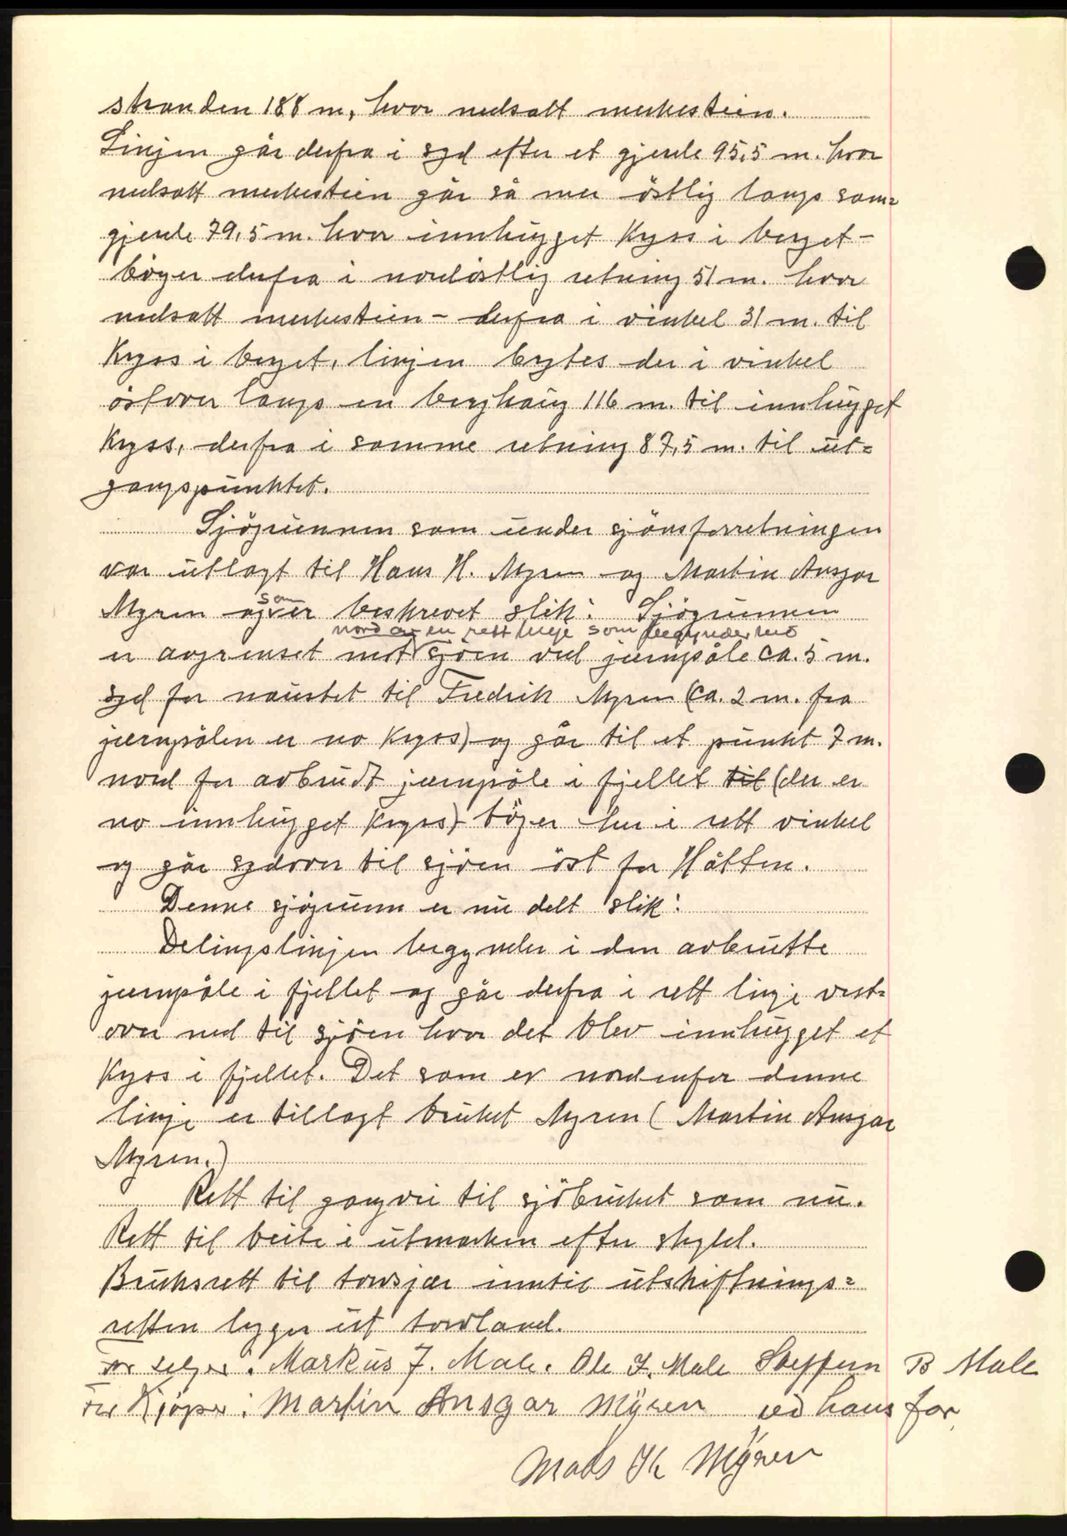 stranden 188 m, hvor nedsatt merkestein.
Linjen går derfra i syd efter et gjerde 95,5 m. hvor
nedsatt merkestein går så mer östlig langs sam=
gjerde 79,5 m. hvor innhugget Kyss i berget -
böyer derfra i nordöstlig retning 51 m. hvor
nedsatt merkestein - derfra i vinkel 31 m. til
Kryss i berget, linjen brytes der i vinkel
östover langs en berghaug 116 m. til innhugget
Kryss, derfra i samme retning 87,5 m. til ut=
gangspunktet.
Sjögrunnen som under sjönsforretningen
var utlagt til Hans H. Myren og Martin Ansgar
Myren og som er beskrevet slik: Sjögrunnen
nord av en rett linje som begynder ved
er avgrenset mot sjöen ved jernpåle ca. 5 m.
syd for naustet til Fredrik Myren (ca. 2 m. fra
jernpålen er no Kryss) og går til et punkt 7 m.
nord for avbrudt jernpåle i fjellet til (der er
no innhugget Kryss) böyer her i rett vinkel
og går sydover til sjöen öst for Håtten.
Denne sjögrunn er nu delt slik:
Delingslinjen begynder i den avbrutte
jernpåle i fjellet og går derfra i rett linje vest=
over ned til sjöen hvor det blev innhugget et
Kryss i fjellet. Det som er nordenfor denne
linje er tillagt bruket Myren (Martin Ansgar
Myren.)
Rett til gangvei til sjöbruket som nu.
Rett til beite i utmarken efter skyld.
Bruksrett til torvsjær inntil utskiftnings=
retten legger ut torvland.
For selger: Markus J. Male. Ole J. Male Steffen B Male
For Kjøper: Martin Ansgar Mÿren ved hans far
Mads K Mÿren